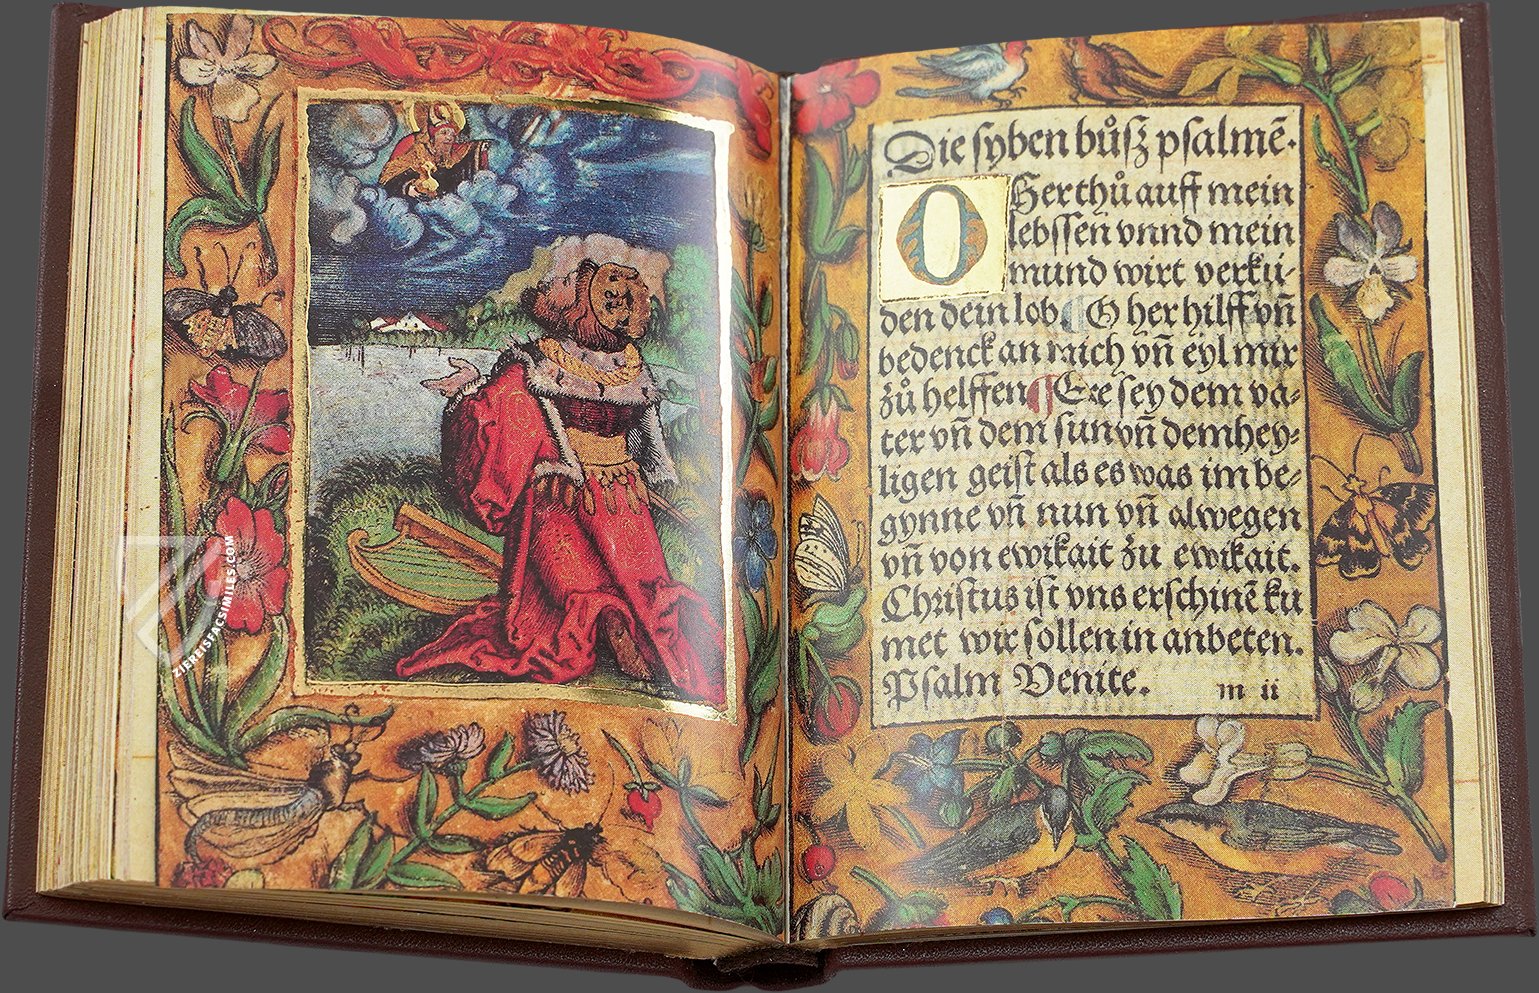 ZIERERUSFACSIMILES.COM
Die syben bůsz psalmē.
O Her thů auff mein
lebssen vnnd mein
mund wirt verkü-
den dein lob ¶ O her hilff vn̄
bedenck an mich vn̄ eyl mir
zů helffen ¶ Ere sey dem va-
ter vn̄ dem sun vn̄ dem hey-
ligen geist als es was im be-
gynne vn̄ nun vn̄ alwegen
vn̄ von ewikait zu ewikait.
Christus ist vns erschinē ku
met wir sollen in anbeten.
Psalm Venite. m ii